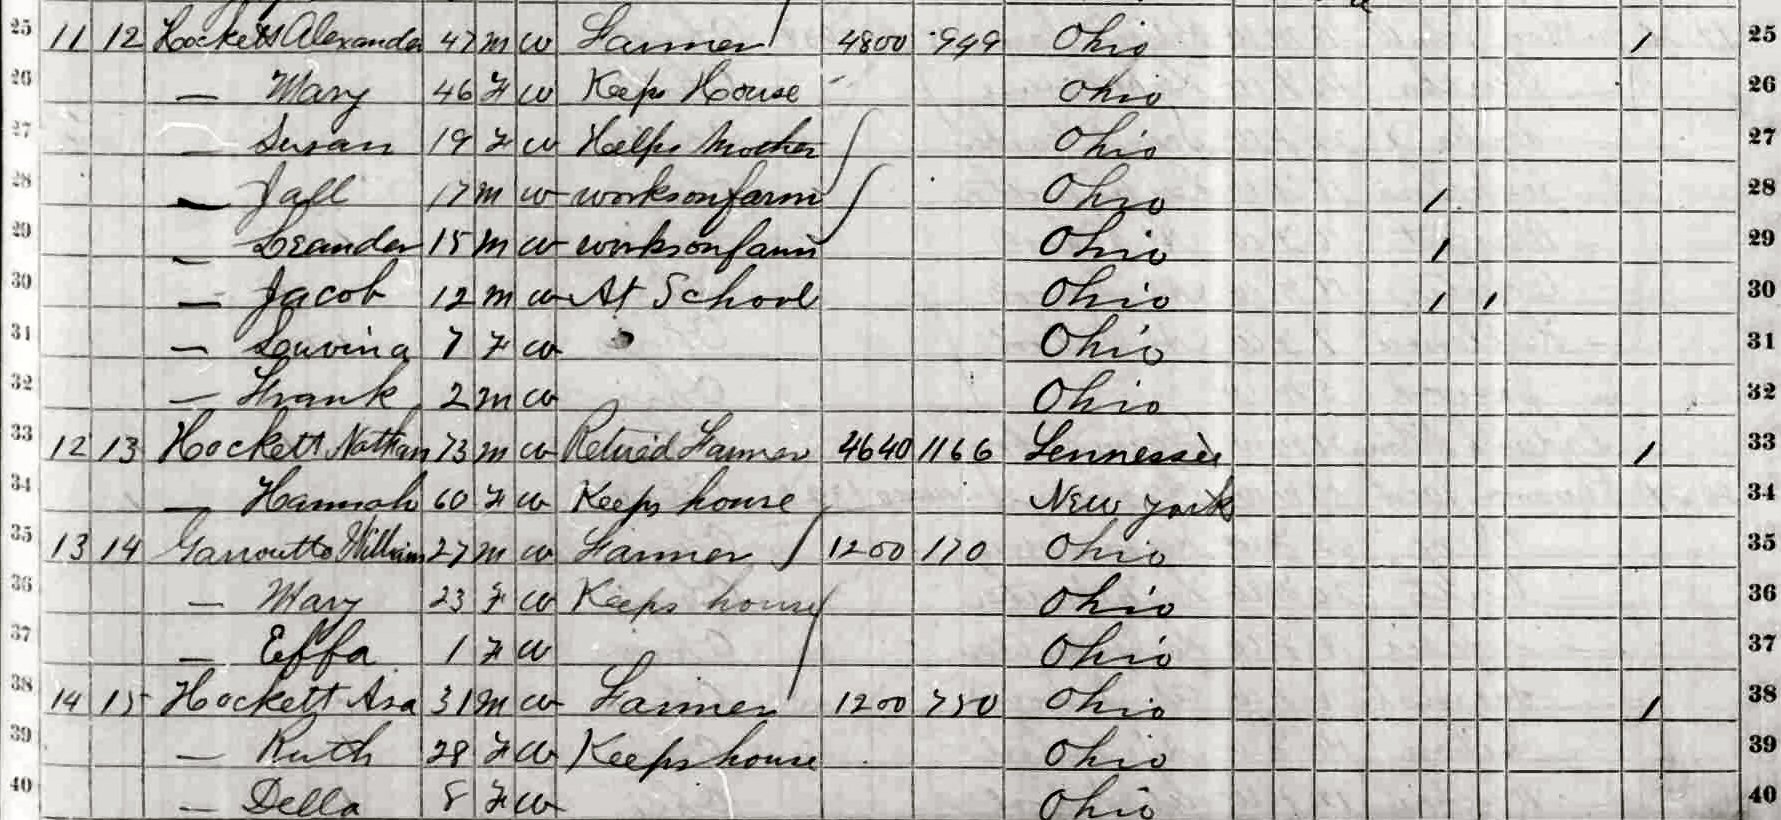 25 11 12 Hockett Alexander 47 m w Farmer 4800 949 Ohio / 25
26 — Mary 46 F w Keeps House Ohio 26
27 — Susan 19 F w Helps Mother Ohio 27
28 — Jall 17 m w works on farm Ohio / 28
29 — Leander 15 m w works on farm Ohio / 29
30 — Jacob 12 m w At School Ohio / / 30
31 — Louvina 7 F w Ohio 31
32 — Frank 2 m w Ohio 32
33 12 13 Hockett Nathan 73 m w Retired Farmer 4640 1166 Tennessee / 33
34 — Hannah 60 F w Keeps house New York 34
35 13 14 Garroutte William 27 m w Farmer 1200 170 Ohio 35
36 — Mary 23 F w Keeps house Ohio 36
37 — Effa 1 F w Ohio 37
38 14 15 Hockett Asa 31 m w Farmer 1200 750 Ohio / 38
39 — Ruth 28 F w Keeps house Ohio 39
40 — Della 8 F w Ohio 40